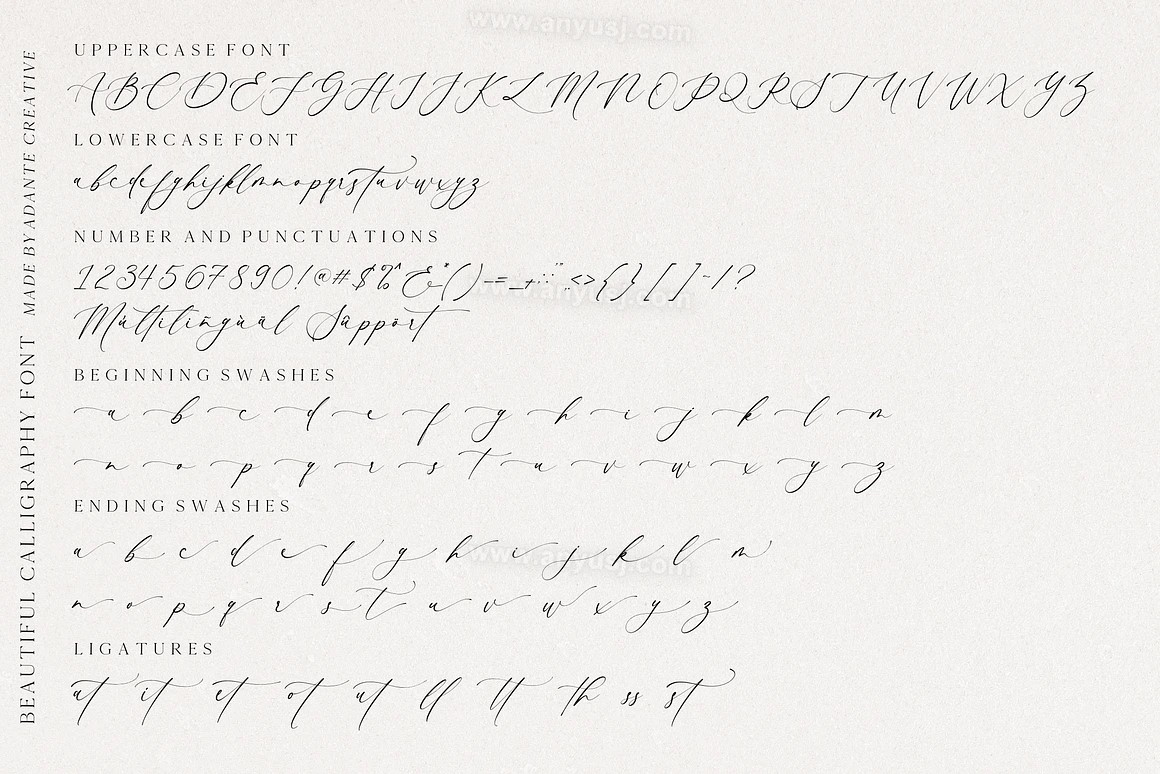 www.anyusj.com
UPPERCASE FONT
A B C D E F G H I J K L M N O P Q R S T U V W X Y Z
LOWERCASE FONT
a b c d e f g h i j k l m n o p q r s t u v w x y z
NUMBER AND PUNCTUATIONS
www.anyusj.com
Multilingual Support
BEGINNING SWASHES
a b c d e f g h i j k l m
n o p q r s t u v w x y z
ENDING SWASHES
a b c d e f g h i j k l m
www.anyusj.com
n o p q r s t u v w x y z
LIGATURES
at it et ot ut ll tt th ss st
BEAUTIFUL CALLIGRAPHY FONT MADE BY ADANTE CREATIVE